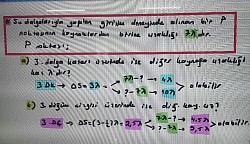 ② Su dalgalarıyla yapılan girişim deneyinde alınan bir P
noktasının kaynaklardan birine uzaklığı 7λ dır.
P noktası;
a) 3. dalga katarı üzerinde ise diğer kaynağa uzaklığı
kaç λ dır?
3.DK → ΔS = 3λ 7λ - ? → 4λ
? - 7λ → 10λ olabilir.
b) 3. düğüm çizgisi üzerinde ise diğ. kay. uz?
3.DÇ → ΔS = (3-½)λ = 2,5λ 7λ - ? → 4,5λ
? - 7λ → 9,5λ olabilir.